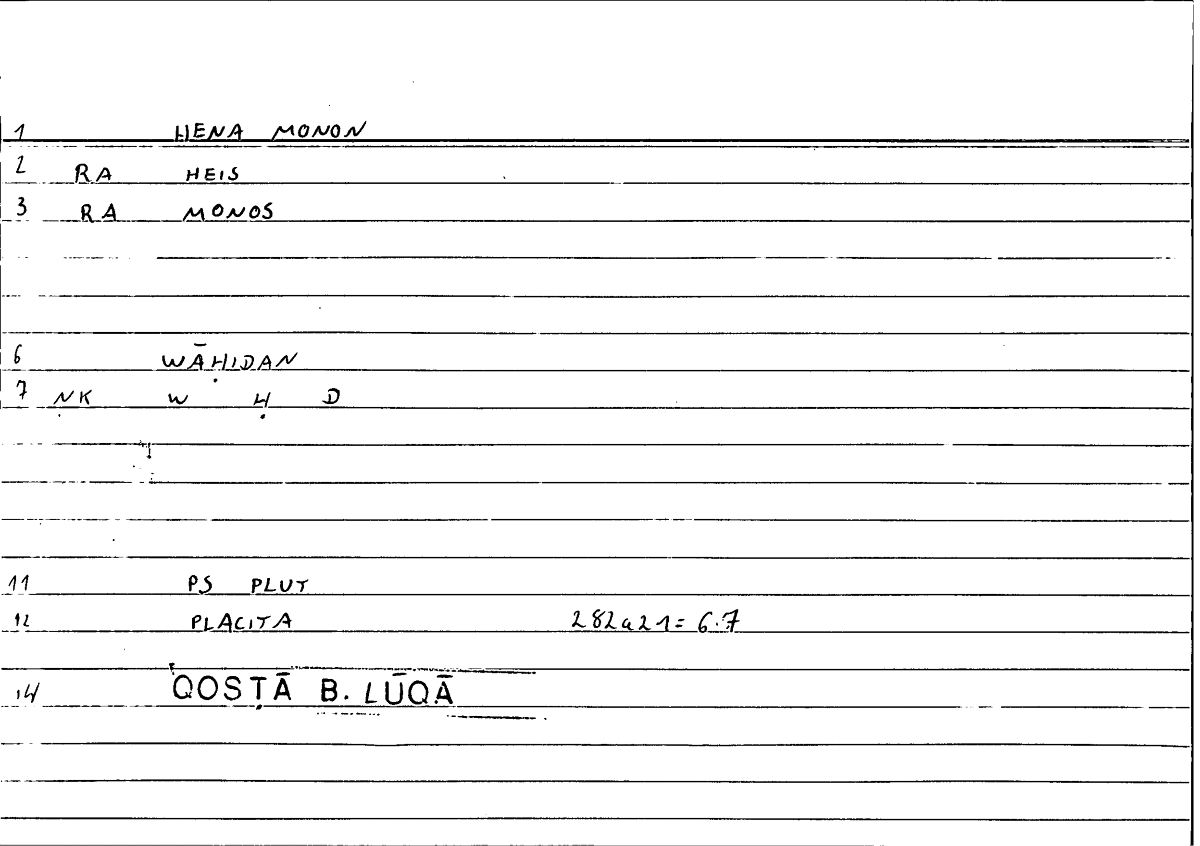 1 HENA MONON
2 RA HEIS
3 RA MONOS
6 WĀḤIDAN
7 ṆK W Ḥ D
11 PS PLUT
12 PLACITA 282a21=6.7
14 QOSṬĀ B. LŪQĀ